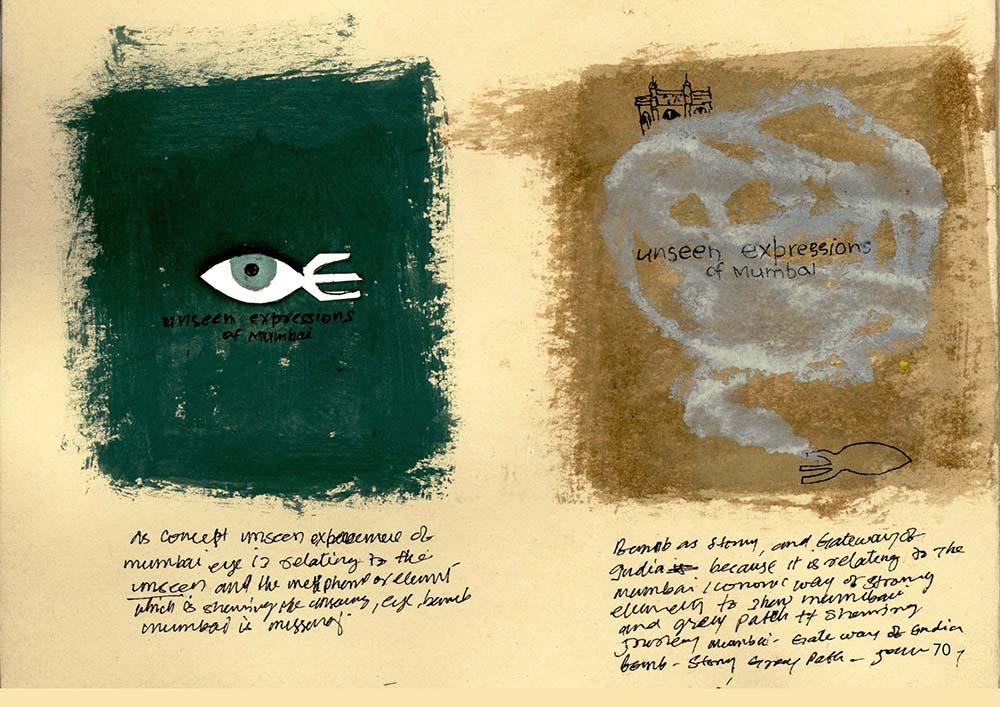 unseen expressions
of Mumbai
unseen expressions
of Mumbai
As concept unseen of
mumbai eye is relating to the
unseen and the or element
which is showing the unseen, eye, bomb
mumbai is missing
Bomb as story, and Gateway of
India because it is relating to the
mumbai iconic way of strong
element to show mumbai
and grey path showing
journey mumbai - Gate way of India
bomb - story Grey Path - 70